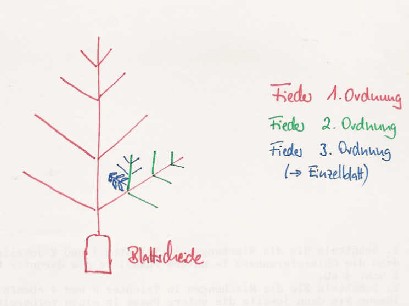 Fieder 1. Ordnung
Fieder 2. Ordnung
Fieder 3. Ordnung
(→ Einzelblatt)
Blattscheide